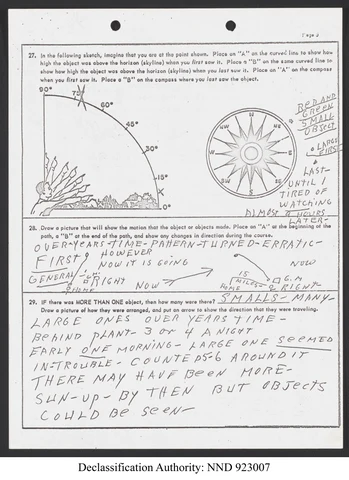 Page 3
27. In the following sketch, imagine that you are at the point shown. Place an "A" on the curved line to show how
high the object was above the horizon (skyline) when you first saw it. Place a "B" on the same curved line to
show how high the object was above the horizon (skyline) when you last saw it. Place an "A" on the compass
when you first saw it. Place a "B" on the compass where you last saw the object.
90°
75°
60°
45°
30°
15°
0°
N
NE
E
SE
S
SW
W
NW
RED AND
GREEN
SMALL
OBJECT
LARGE
FIRST
LAST-
UNTIL I
TIRED OF
WATCHING
HOURS
LATER-
28. Draw a picture that will show the motion that the object or objects made. Place an "A" at the beginning of the
path, a "B" at the end of the path, and show any changes in direction during the course.
OVER-YEARS-TIME-PATTERN-TURNED-ERRATIC-
FIRST HOWEVER
NOW IT IS GOING
NOW
GENERAL
RIGHT NOW
HOME
15
MILES
HOME
G.M
RIGHT-
29. IF there was MORE THAN ONE object, then how many were there? SMALLS-MANY-
Draw a picture of how they were arranged, and put an arrow to show the direction that they were traveling.
LARGE ONES OVER YEARS TIME-
BEHIND PLANT-3 OR 4 A NIGHT
EARLY ONE MORNING-LARGE ONE SEEMED
IN-TROUBLE-COUNTED 5-6 AROUND IT
THERE MAY HAVE BEEN MORE-
SUN-UP-BY THEN BUT OBJECTS
COULD BE SEEN-
Declassification Authority: NND 923007